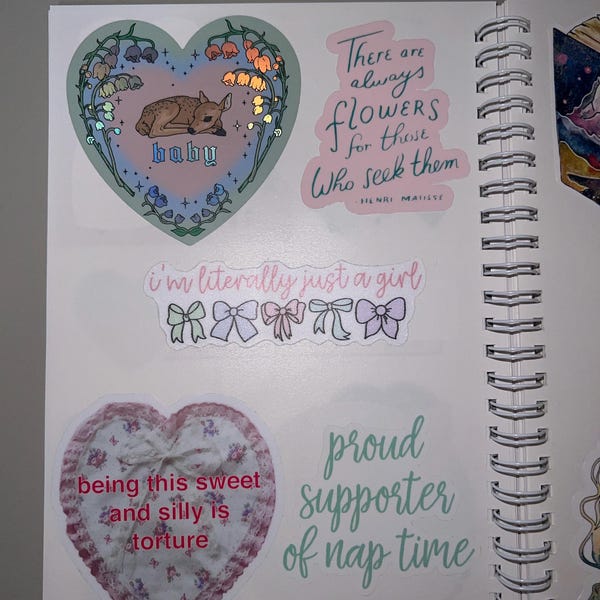 baby
There are
always
flowers
for those
Who seek them
- HENRI MATISSE
i'm literally just a girl
being this sweet
and silly is
torture
proud
supporter
of nap time